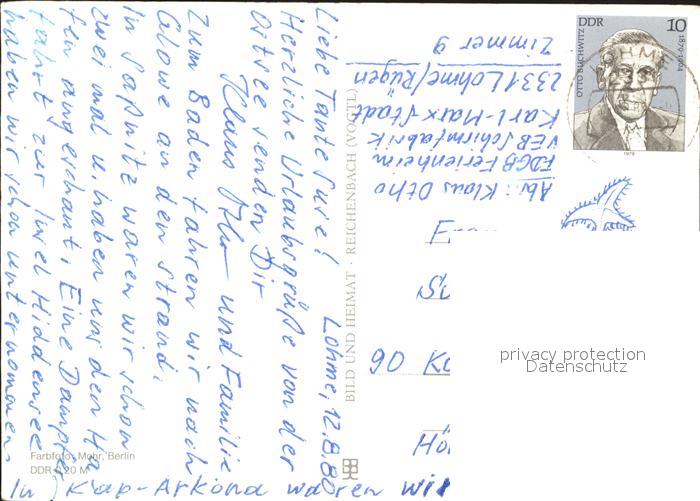 Lohme, 12.8.80
Liebe Tante Suse!
Herzliche Urlaubsgrüße von der
Ostsee senden Dir
Klaus Otho und Familie
Zum Baden fahren wir nach
Glowe an den Strand.
In Saßnitz waren wir schon
zwei mal u. haben uns den Ha
fen angeschaut. Eine Dampfer
fahrt zur Insel Hiddensee
haben wir schon unternommen
In Kap-Arkona waren wir
BILD UND HEIMAT · REICHENBACH (VOGTL)
Farbfoto: Mohr, Berlin
DDR 0,20 M
Abs.: Klaus Otho
FDGB Ferienheim
VEB Schirmfabrik
Karl-Marx-Stadt
2331 Lohme/Rügen
Zimmer 9
DDR 10
OTTO BUCHWITZ 1879-1964
1979
LOHME
90 K
privacy protection
Datenschutz